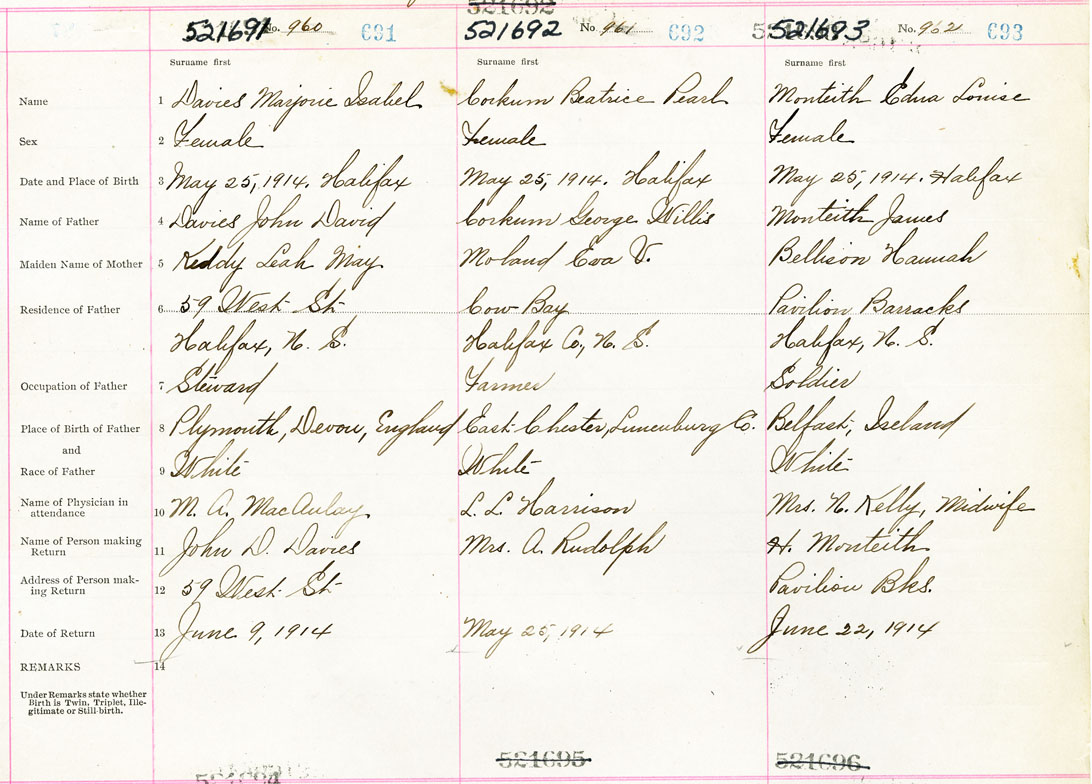 521692
521691 No. 960 691 521692 No. 961 692 521693 No. 962 693
Surname first Surname first Surname first
Name 1 Davies Marjorie Isabel Corkum Beatrice Pearl Monteith Edna Louise
Sex 2 Female Female Female
Date and Place of Birth 3 May 25, 1914. Halifax May 25, 1914. Halifax May 25, 1914. Halifax
Name of Father 4 Davies John David Corkum George Willis Monteith James
Maiden Name of Mother 5 Keddy Leah May Moland Eva V. Bellison Hannah
Residence of Father 6 59 West St Cow Bay Pavilion Barracks
Halifax, N. S. Halifax Co, N. S. Halifax, N. S.
Occupation of Father 7 Steward Farmer Soldier
Place of Birth of Father 8 Plymouth, Devon, England East Chester, Lunenburg Co. Belfast, Ireland
and
Race of Father 9 White White White
Name of Physician in
attendance 10 M. A. MacAulay L. L. Harrison Mrs. N. Kelly, Midwife
Name of Person making
Return 11 John D. Davies Mrs. A. Rudolph H. Monteith
Address of Person mak-
ing Return 12 59 West St Pavilion Bks.
Date of Return 13 June 9, 1914 May 25, 1914 June 22, 1914
REMARKS 14
Under Remarks state whether
Birth is Twin, Triplet, Ille-
gitimate or Still-birth.
521695 521696